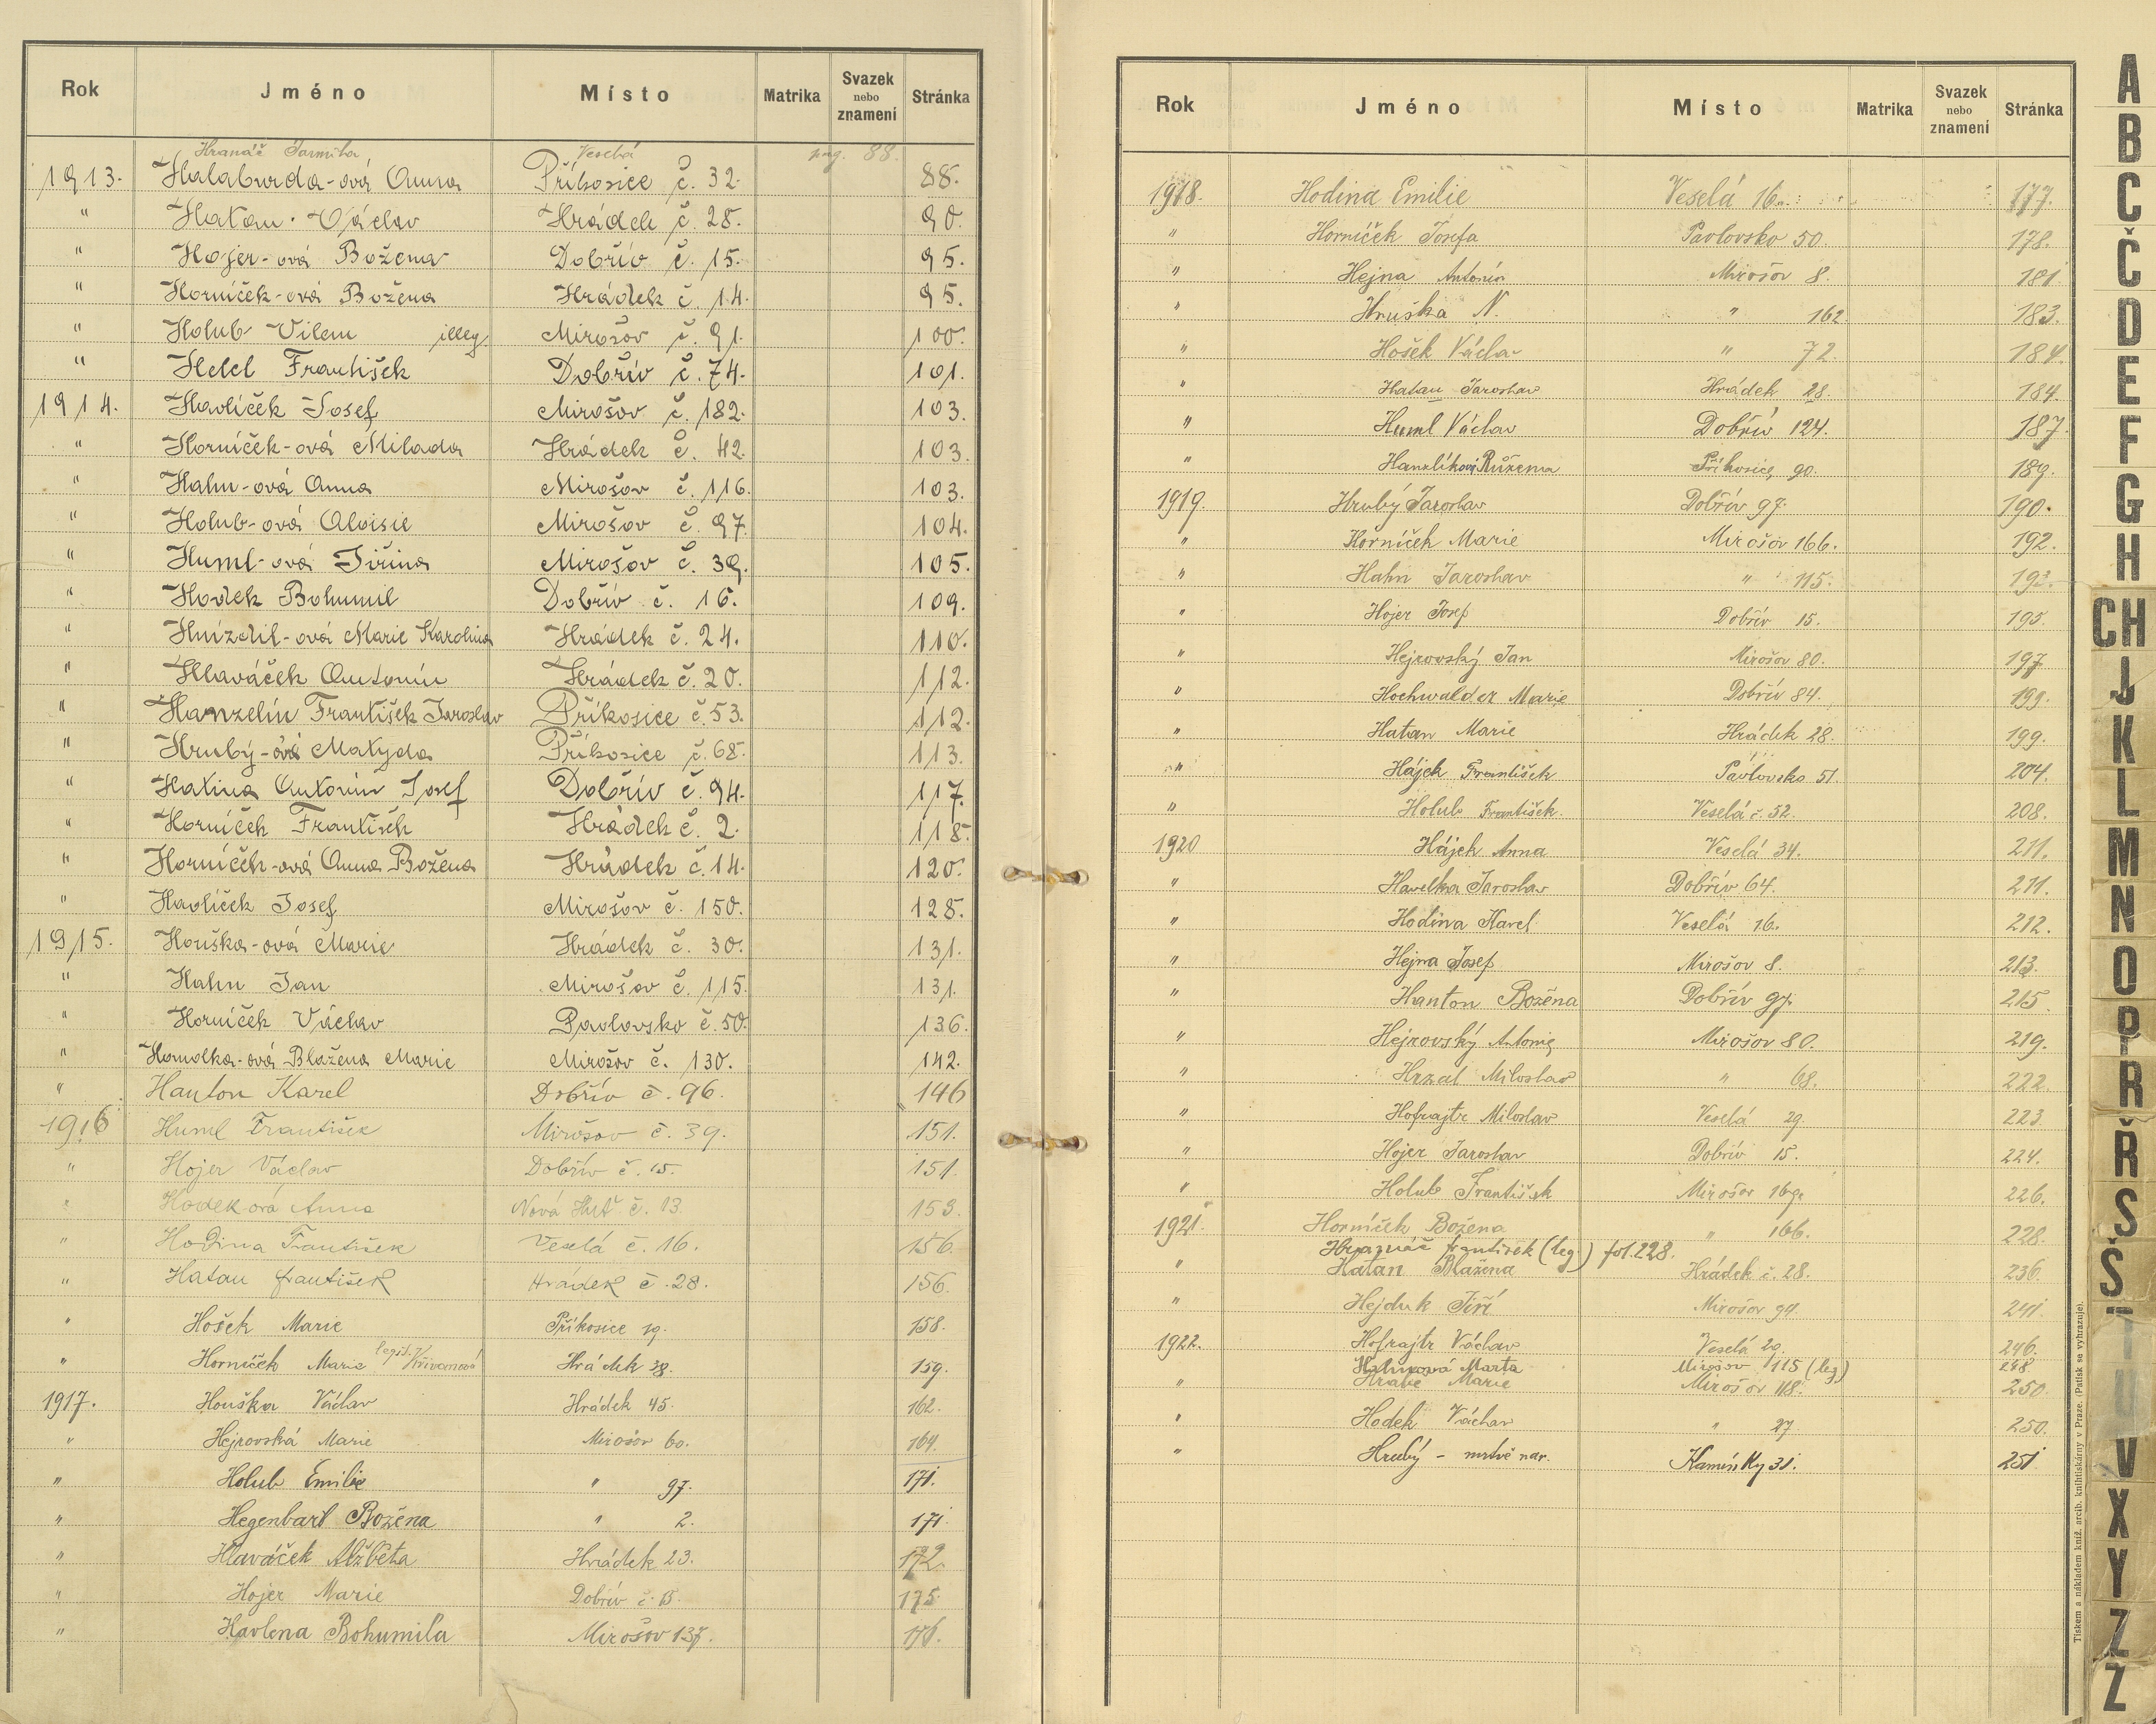 Rok Jméno Místo Matrika Svazek nebo znamení Stránka
Hranáč Jarmila Veselá pag. 88.
1913. Halaburda-ová Anna Příkosice č. 32. 88.
" Hatan Václav Hrádek č. 28. 90.
" Hojer-ová Božena Dobřív č. 15. 95.
" Horníček-ová Božena Hrádek č. 14. 95.
" Holub Vilem illeg. Mirošov č. 91. 100.
" Hetel František Dobřív č. 74. 101.
1914. Havlíček Josef Mirošov č. 182. 103.
" Horníček-ová Milada Hrádek č. 42. 103.
" Hahn-ová Anna Mirošov č. 116. 103.
" Holub-ová Aloisie Mirošov č. 97. 104.
" Huml-ová Jiřina Mirošov č. 39. 105.
" Hodek Bohumil Dobřív č. 16. 109.
" Hnízdil-ová Marie Karolina Hrádek č. 24. 110.
" Hlaváček Antonín Hrádek č. 20. 112.
" Hanzelín František Jaroslav Příkosice č. 53. 112.
" Hrubý-ová Matylda Příkosice č. 68. 113.
" Hatina Antonín Josef Dobřív č. 94. 117.
" Horníček František Hrádek č. 2. 118.
" Horníček-ová Anna Božena Hrádek č. 14. 120.
" Havlíček Josef Mirošov č. 150. 128.
1915. Houška-ová Marie Hrádek č. 30. 131.
" Hahn Jan Mirošov č. 115. 131.
" Horníček Václav Pavlovsko č. 50. 136.
" Homolka-ová Blažena Marie Mirošov č. 130. 142.
" Hanton Karel Dobřív č. 96. 146
1916 Huml František Mirošov č. 39. 151.
" Hojer Václav Dobřív č. 15. 151.
" Hodek ová Anna Nová Huť č. 13. 153.
" Hodina František Veselá č. 16. 156.
" Hatan František Hrádek č. 28. 156.
" Hošek Marie Příkosice 19. 158.
" Horníček Marie legit. Křivanová Hrádek 38. 159.
1917. Houška Václav Hrádek 45. 162.
" Hejrovská Marie Mirošov 60. 164.
" Holub Emilie " 97. 171.
" Hegenbart Božena " 2. 171.
" Hlaváček Alžběta Hrádek 23. 172.
" Hojer Marie Dobřív č. 15. 175.
" Havlena Bohumila Mirošov 137. 176.
Rok Jméno Místo Matrika Svazek nebo znamení Stránka
1918. Hodina Emilie Veselá 16. 177.
" Horníček Josefa Pavlovsko 50. 178.
" Hejna Antonín Mirošov 8. 181.
" Hruška N. " 162 183.
" Hošek Václav " 72. 184.
" Hatan Jaroslav Hrádek 28. 184.
" Huml Václav Dobřív 124. 187.
" Hanzlíková Růžena Příkosice 90. 189.
1919. Hrubý Jaroslav Dobřív 97. 190.
" Horníček Marie Mirošov 166. 192.
" Hahn Jaroslav " 115. 193.
" Hojer Josef Dobřív 15. 195.
" Hejrovský Jan Mirošov 80. 197
" Hochwalder Marie Dobřív 84. 199.
" Hatan Marie Hrádek 28. 199.
" Hájek František Pavlovsko 51. 204.
" Holub František. Veselá č. 52. 208.
1920 Hájek Anna Veselá 34. 211.
" Havelka Jaroslav Dobřív 64. 211.
" Hodina Karel Veselá 16. 212.
" Hejna Josef Mirošov 8. 213.
" Hanton Božena Dobřív 97. 215.
" Hejrovský Antonín Mirošov 80. 219.
" Hrzal Miloslav " 68. 222.
" Hofrajtr Miloslav Veselá 29. 223.
" Hojer Jaroslav Dobřív 15. 224.
" Holub František Mirošov 169. 226.
1921. Horníček Božena " 166. 228.
Hranáč František (leg) fol. 228.
" Hatan Blažena Hrádek č. 28. 236.
" Hejduk Jiří Mirošov 94. 241.
1922. Hofrajtr Václav Veselá 29. 246.
Hahnová Marta Mirošov 115 (leg) 248
" Hrabě Marie Mirošov 118. 250.
" Hodek Václav " 27. 250.
" Hrubý - mrtvě nar. Kamínky 31. 251.
Tiskem a nákladem kníž. arcib. knihtiskárny v Praze. (Patisk se vyhrazuje).
A
B
C
Č
D
E
F
G
H
CH
J
K
L
M
N
O
P
R
Ř
S
Š
T
U
V
X
Y
Z
Ž